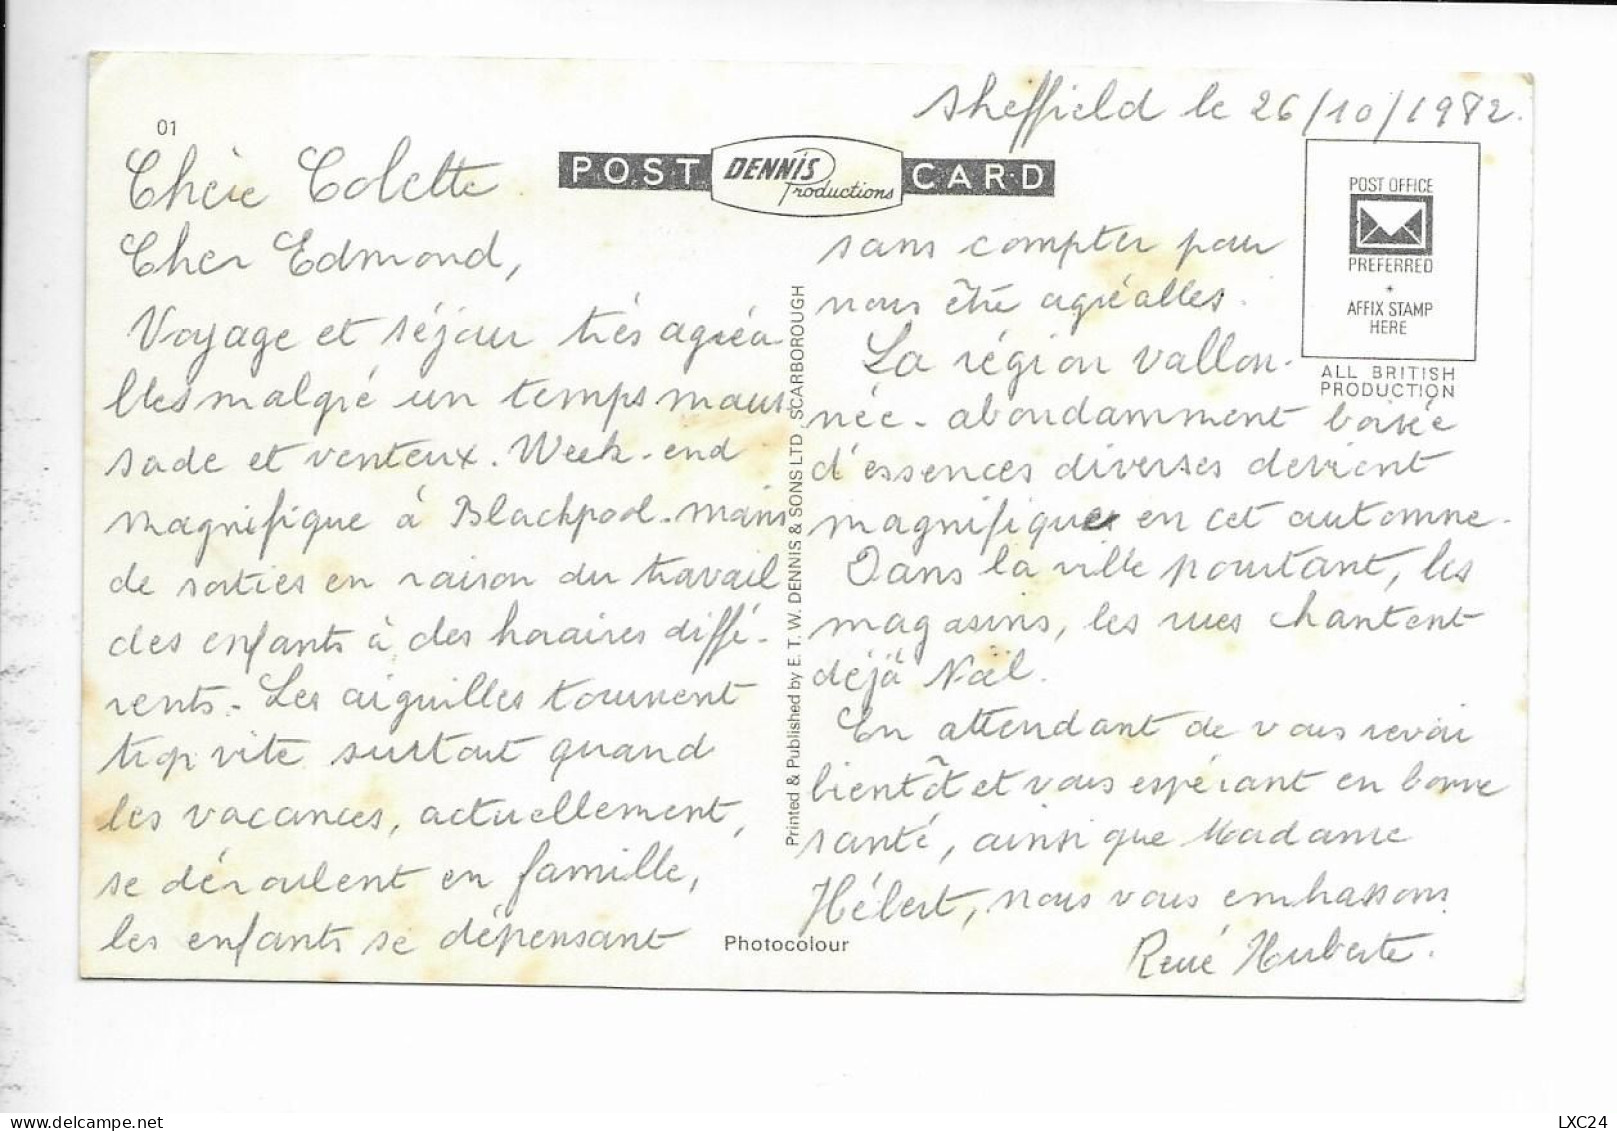 Sheffield le 26/10/1982.
01
POST DENNIS Productions CARD
Chère Colette
Cher Edmond,
Voyage et séjour très agréa-
bles malgré un temps maus
sade et venteux. Week-end
magnifique à Blackpool. moins
de sorties en raison du travail
des enfants à des horaires diffé-
rents. Les aiguilles tournent
trop vite surtout quand
les vacances, actuellement,
se déroulent en famille,
les enfants se dépensant
Printed & Published by E. T. W. DENNIS & SONS LTD., SCARBOROUGH
Photocolour
POST OFFICE
PREFERRED
+
AFFIX STAMP
HERE
ALL BRITISH
PRODUCTION
sans compter pour
nous être agréables.
La région vallon-
née - abondamment boisée
d'essences diverses devient
magnifique en cet automne.
Dans la ville pourtant, les
magasins, les rues chantent
déjà Noël.
En attendant de vous revoir
bientôt et vous espérant en bonne
santé, ainsi que Madame
Hébert, nous vous embrassons
René Huberte.
LXC24